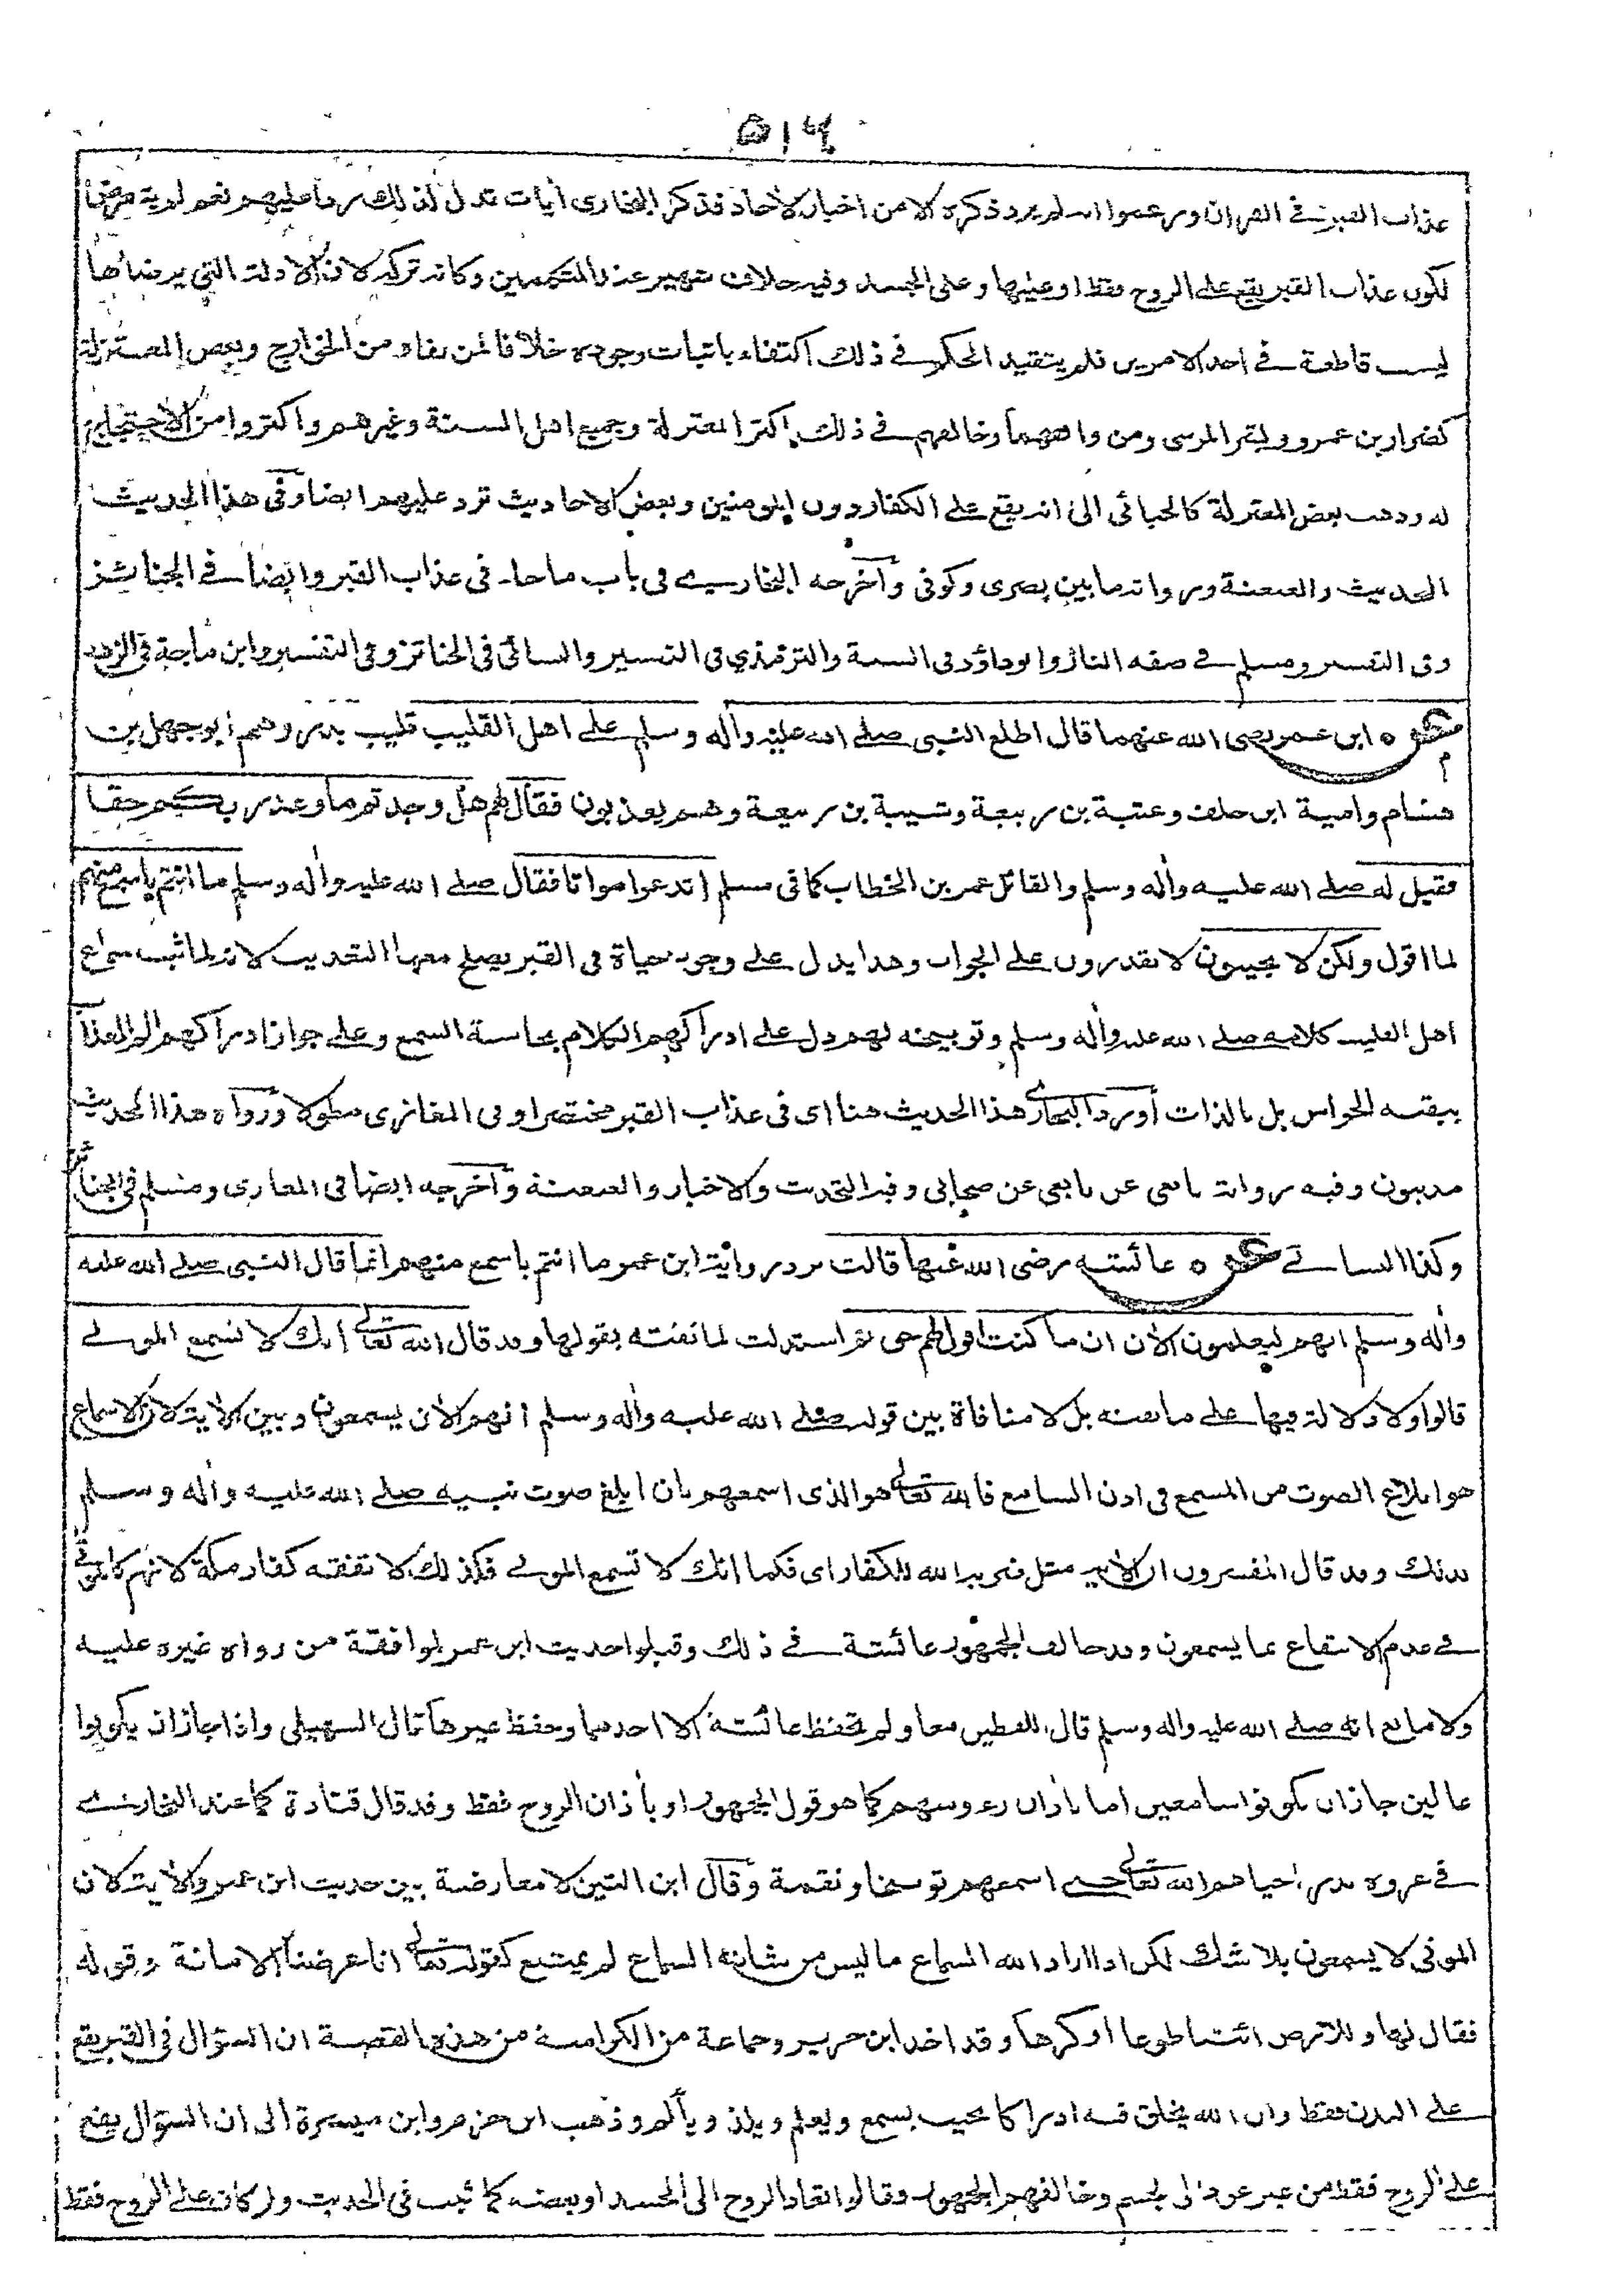 ٥١٦
عذاب القبر في القران وزعموا انه لم يرد ذكره الا من اخبار الاحاد فذكر البخاري ايات تدل لذلك ردا عليهم نعم لم يتعرض
لكون عذاب القبر يقع على الروح فقط او عليها وعلى الجسد وفيه خلاف شهير عند المتكلمين وكانه تركه لان الادلة التي يرضاها
ليست قاطعة في احد الامرين فلم يتقيد الحكم في ذلك اكتفاء باثبات وجوده خلافا لمن نفاه من الخوارج وبعض المعتزلة
كضرار بن عمرو وبشر المريسى ومن وافقهما وخالفهم في ذلك اكثر المعتزلة وجميع اهل السنة وغيرهم واكثروا من الاحتجاج
له وذهب بعض المعتزلة كالجبائي الى انه يقع على الكفار دون المؤمنين وبعض الاحاديث ترد عليهم ايضا وفي هذا الحديث
التحديث والعنعنة ورواته ما بين بصرى وكوفي وآخرجه البخاري في باب ما جاء في عذاب القبر وايضا في الجنائز
وفي التفسير ومسلم في صفه النار وابوداؤد في السنة والترمذي في التفسير والنسائي في الجنائز وفي التفسير وابن ماجة في الزهد
عن ابن عمر رضي الله عنهما قال اطلع النبي صلى الله عليه وآله وسلم على اهل القليب قليب بدر وهم ابو جهل بن
هشام وامية ابن خلف وعتبة بن ربيعة وشيبة بن ربيعة وهم يعذبون فقال لهم هل وجدتم ما وعد ربكم حقا
فقيل له صلى الله عليه وآله وسلم والقائل عمر بن الخطاب كما في مسلم اتدعوا مواتا فقال صلى الله عليه وآله وسلم ما انتم باسمع منهم
لما اقول ولكن لا يجيبون لا يقدرون على الجواب وهذا يدل على وجود حياة في القبر يصلح معها التعذيب لانه لما ثبت سماع
اهل القليب كلامه صلى الله عليه وآله وسلم وتوبيخه لهم دل على ادراكهم الكلام بحاسة السمع وعلى جواز ادراكهم الم العذاب
ببقية الحواس بل بالذات أورد البخاري هذا الحديث هنا اى في عذاب القبر مختصرا وفي المغازى مطولا ورواه هذا الحديث
مدنيون وفيه رواية تابعي عن تابعي عن صحابي وفيه التحديث والاخبار والعنعنة وآخرجه ايضا في المغازى ومسلم في الجنائز
وكذا النسائي عن عائشة رضي الله عنها قالت ترد رواية ابن عمر ما انتم باسمع منهم انما قال النبي صلى الله عليه
وآله وسلم انهم ليعلمون الآن ان ما كنت اقول لهم حق ثم استدلت لما نفته بقولها وقد قال الله تعالى انك لا تسمع الموتى
قالوا ولا دلالة فيها على ما نفته بل لا منافاة بين قوله صلى الله عليه وآله وسلم انهم الآن يسمعون وبين الآية لان الاسماع
هو ابلاغ الصوت من المسمع في اذن السامع فالله تعالى هو الذى اسمعهم بان ابلغ صوت نبيه صلى الله عليه وآله وسلم
بذلك وقد قال المفسرون ان الآية مثل ضربه الله للكفار اى فكما انك لا تسمع الموتى فكذلك لا تفقه كفار مكة لانهم كالموتى
في عدم الانتفاع بما يسمعون وقد خالف الجمهور عائشة في ذلك وقبلوا حديث ابن عمر لموافقة من رواه غيره عليه
ولا مانع انه صلى الله عليه وآله وسلم قال اللفظين معا ولم تحفظ عائشة الا احدهما وحفظ غيرها قال السهيلي واذا جاز ان يكونوا
عالمين جاز ان يكونوا سامعين اما باذان رءوسهم كما هو قول الجمهور او بأذان الروح فقط وقد قال قتادة كما عند البخاري
في غزوه بدر احياهم الله تعالى حتى اسمعهم توبيخا ونقمة وقال ابن التين لا معارضة بين حديث ابن عمر والآية لان
الموتى لا يسمعون بلا شك لكن اذا اراد الله اسماع ما ليس من شانه السماع لم يمتنع كقوله تعالى انا عرضنا الامانة وقوله
فقال لها وللارض ائتيا طوعا او كرها وقد اخذ ابن جرير وجماعة من الكرامية من هذه القصة ان السؤال في القبر يقع
على البدن فقط وان الله يخلق فيه ادراكا بحيث يسمع ويعلم ويلذ ويألم وذهب ابن حزم وابن ميسرة الى ان السؤال يقع
على الروح فقط من غير عود الى الجسم وخالفهم الجمهور وقالوا تعاد الروح الى الجسد او بعضه كما ثبت في الحديث ولو كان على الروح فقط